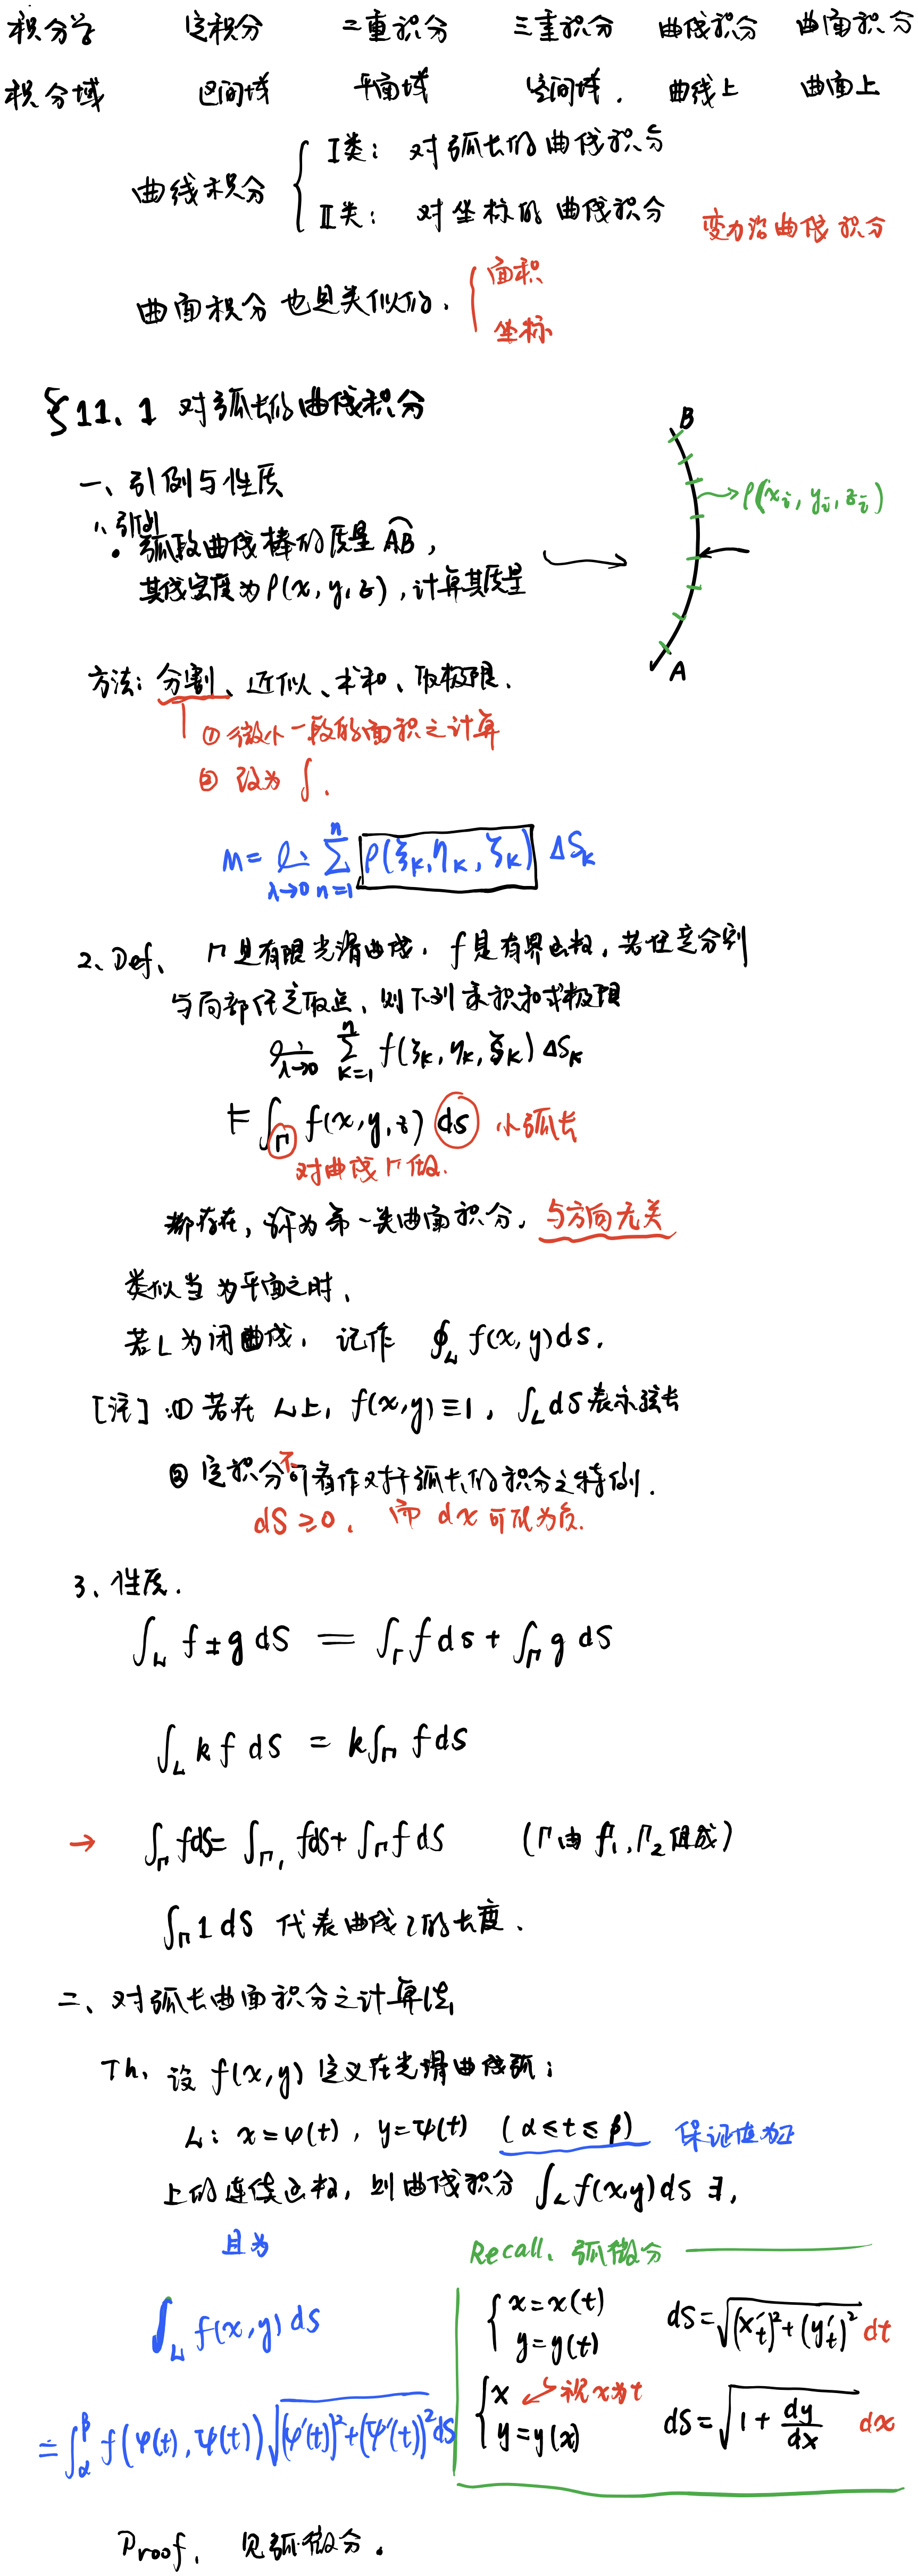 积分学 定积分 二重积分 三重积分 曲线积分 曲面积分
积分域 区间域 平面域 空间域. 曲线上 曲面上
曲线积分 { I类: 对弧长的曲线积分
II类: 对坐标的曲线积分 变力沿曲线积分
曲面积分也是类似的. { 面积
坐标
§11.1 对弧长的曲线积分
一、引例与性质
1、引例
• 弧段曲线棒的质量 AB⌒,
其线密度为ρ(x,y,z),计算其质量
B
ρ(x_i, y_i, z_i)
A
方法: 分割、近似、求和、取极限.
① 微小一段的面积之计算
② 改为 ∫.
M = lim_{λ→0} Σ_{n=1}^{n} ρ(ξ_k, η_k, ζ_k) ΔS_k
2、Def、 Γ是有限光滑曲线. f是有界函数, 若任意分割
与局部任意取点, 则下列乘积和式极限
lim_{λ→0} Σ_{k=1}^{n} f(ξ_k, η_k, ζ_k) ΔS_k
= ∫_Γ f(x,y,z) ds 小弧长
对曲线Γ做.
都存在, 称为第一类曲面积分. 与方向无关
类似当为平面之时、
若L为闭曲线, 记作 ∮_L f(x,y)ds.
[注]:① 若在L上, f(x,y)≡1, ∫_L ds表示弦长
② 定积分不可看作对于弧长的积分之特例.
dS≥0. 而 dx 可以为负.
3、性质.
∫_L f±g dS = ∫_Γ f ds + ∫_Γ g dS
∫_L k f dS = k∫_Γ f dS
→ ∫_Γ fdS = ∫_{Γ_1} fdS + ∫_Γ f dS (Γ由Γ_1,Γ_2组成)
∫_Γ 1 dS 代表曲线的长度.
二、对弧长曲面积分之计算法
Th、设 f(x,y) 定义在光滑曲线弧:
L: x=φ(t), y=ψ(t) (α≤t≤β) 保证值为正
上的连续函数, 则曲线积分 ∫_L f(x,y)ds ∃,
且为
∫_L f(x,y) ds
= ∫_α^β f(φ(t),ψ(t)) √((φ'(t))²+(ψ'(t))²) ds
Recall、弧微分
{ x=x(t)
y=y(t) dS=√((x'_t)²+(y'_t)²) dt
{ x ← 视x为t
y=y(x) dS=√(1+dy/dx) dx
Proof、 见弧微分.